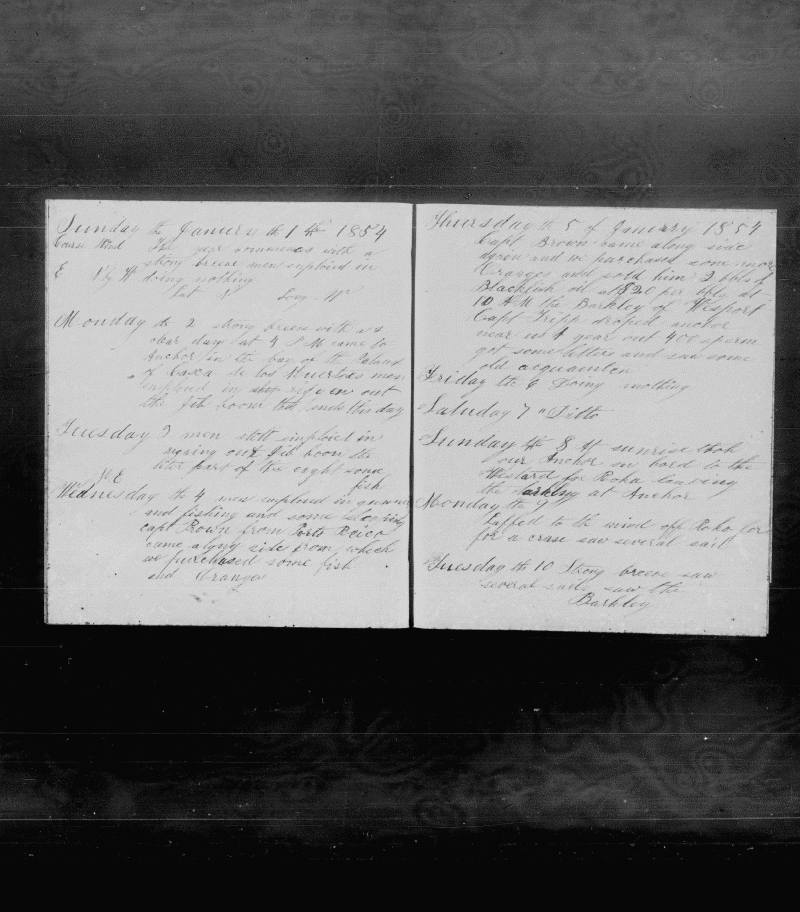 Sunday the January the 1 th 1854
Course Wind The year commences with a
strong breeze men imploid in
E N by W doing nothing
Lat N Long W
Monday the 2 strong breeze with a
clear day at 4 P M came to
Anchor in the bay of the Island
of Caxa de los Muertes men
imploid in riguen out
the Jib boom this ends this day
Tuesday 3 men still imploied in
rigging out Jib boom the
later part of the eight some
fish
Wednesday the 4 men imploid in
and fishing and some
capt Brown from Porto Reico
came along side from which
we purchased some fish
and Oranges
Thursday the 5 of January 1854
Capt Brown came along side
again and we purchased some more
Oranges and sold him 2 bbls of
Blackfish oil at $20 per bbl at
10 A M the Barkley of Wesport
Capt Tripp droped anchor
near us 1 year out 400 sperm
got some letters and saw some
old acquainten
Friday the 6 Doing nothing
Satuday 7 " Ditto
Sunday the 8 At sunrise took
our Anchor on bord to the
Westard for Roka leaveing
the barkley at Anchor
Monday the 9
Luffed to the wind off Roko
for a crase saw several sail
Tuesday the 10 Strong breeze saw
several sails saw the
Barkley